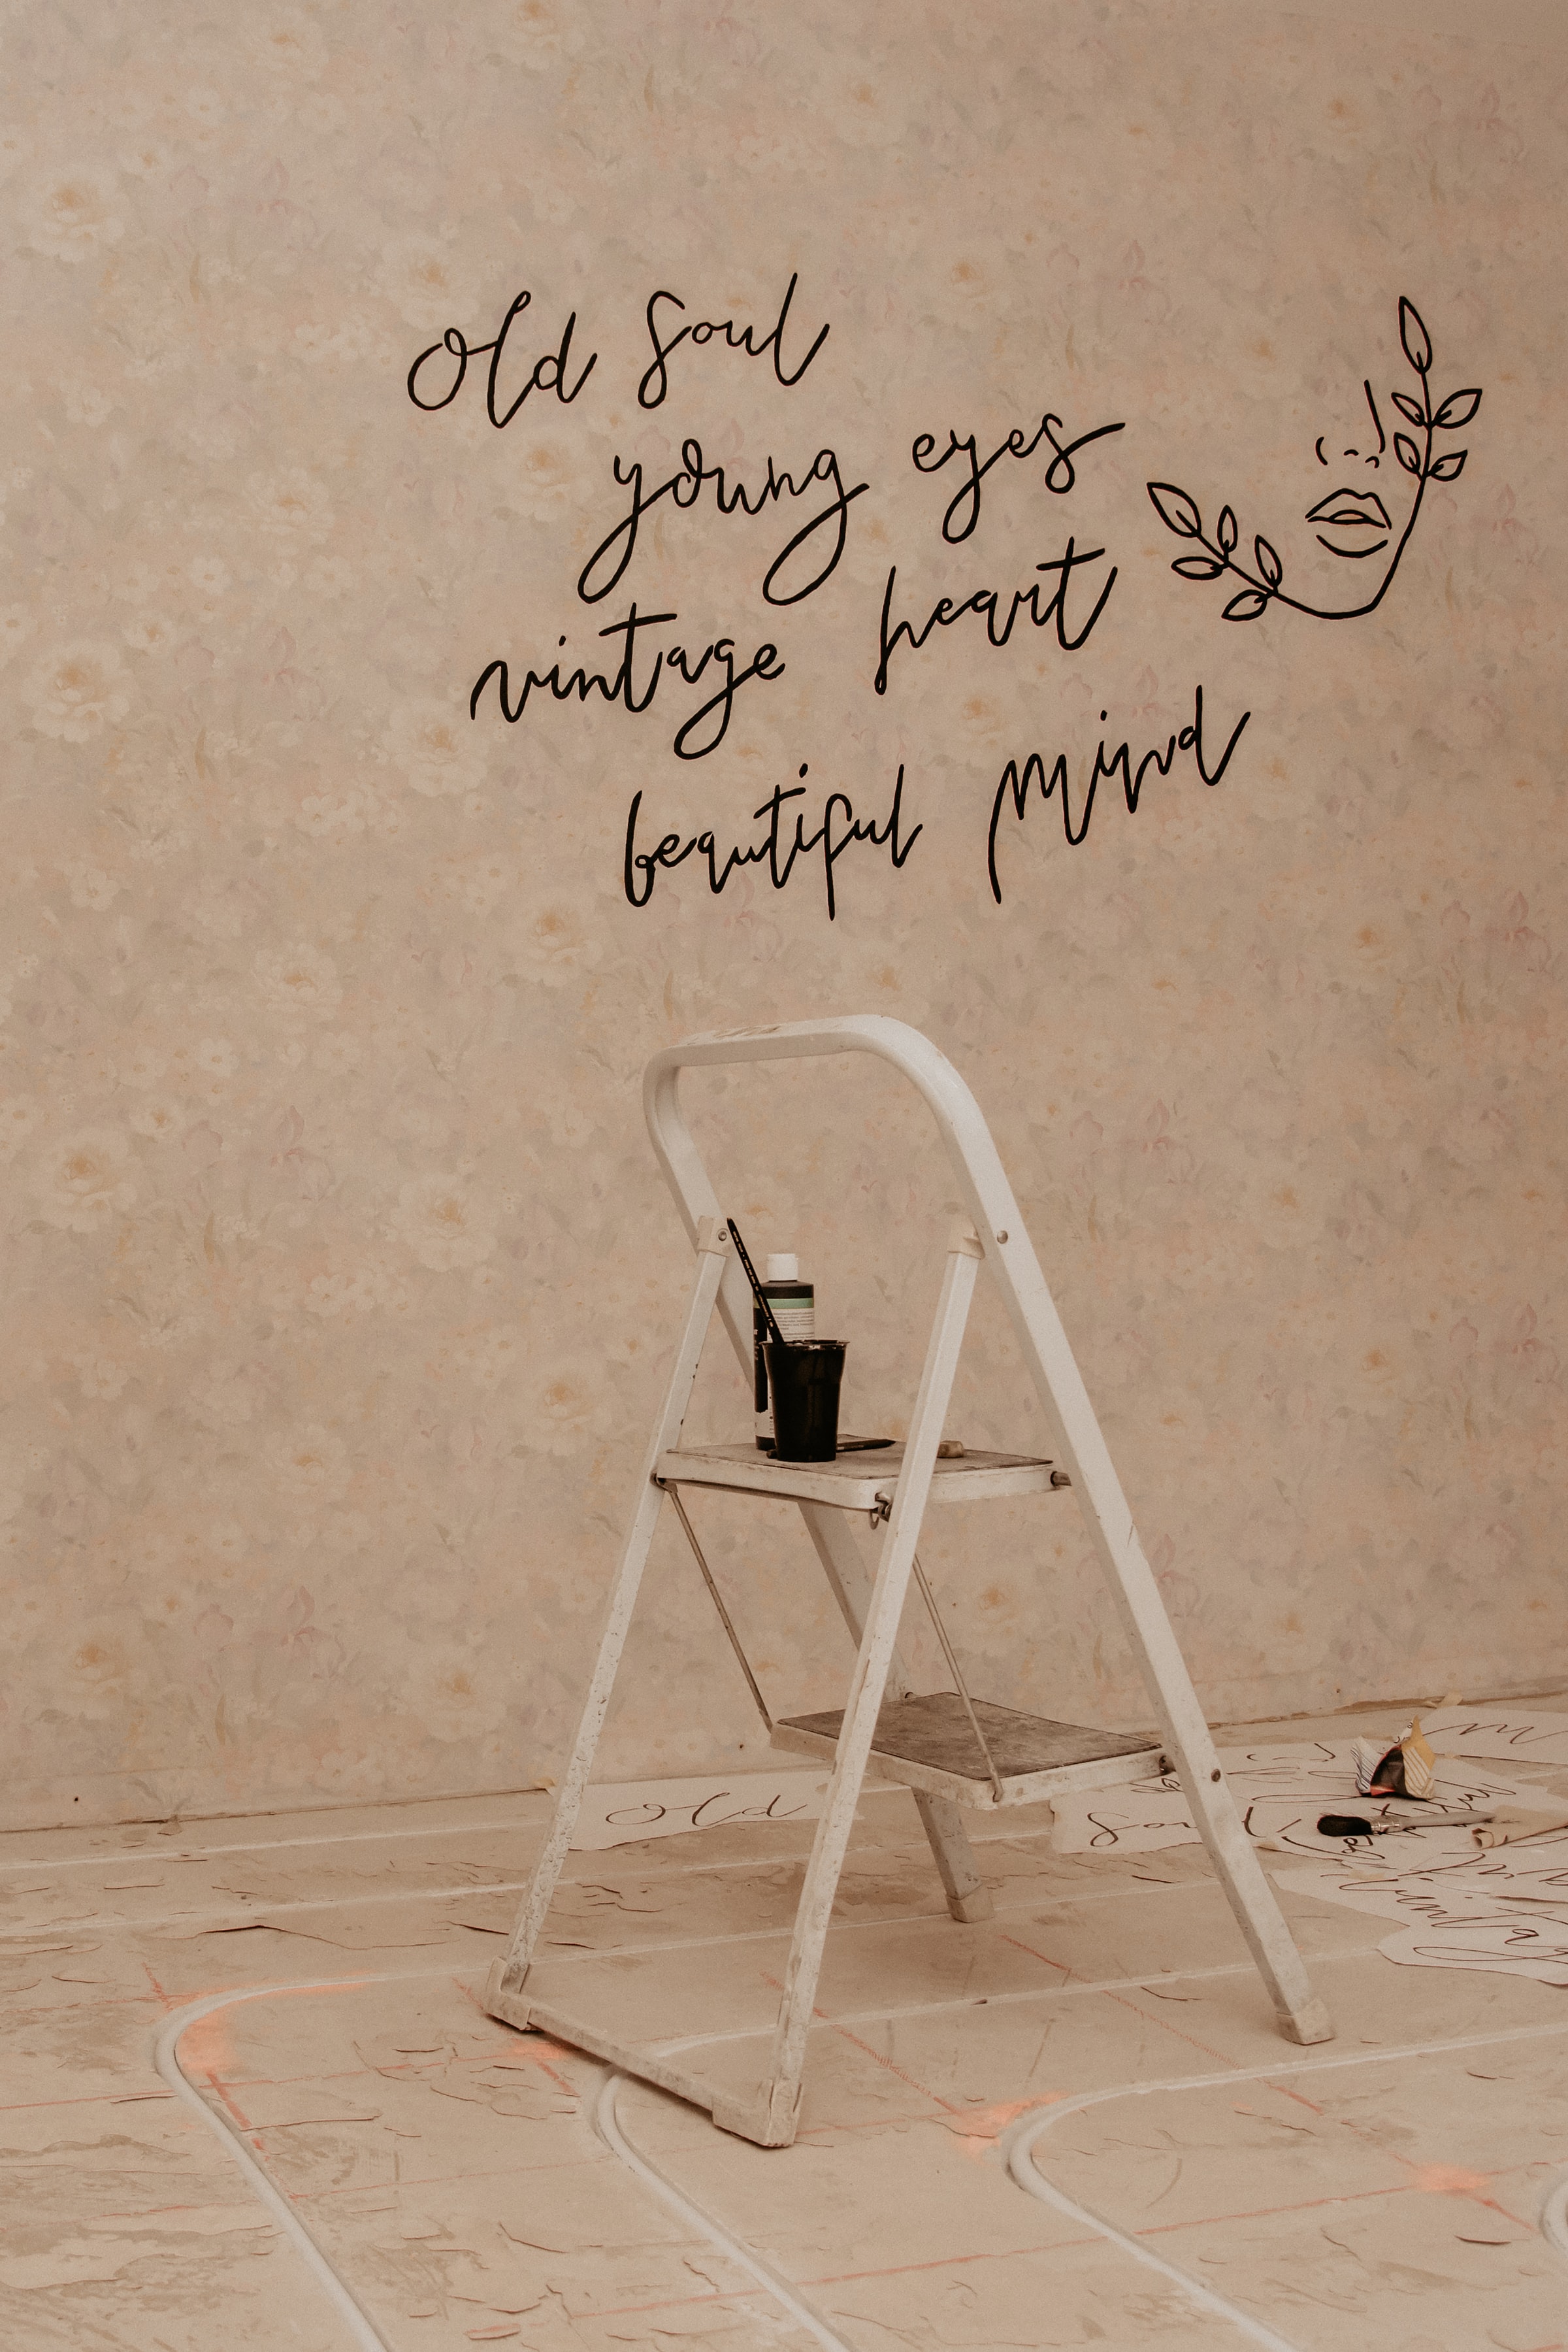 Old soul
young eyes
vintage heart
beautiful mind
Old
Soul
m
vintag